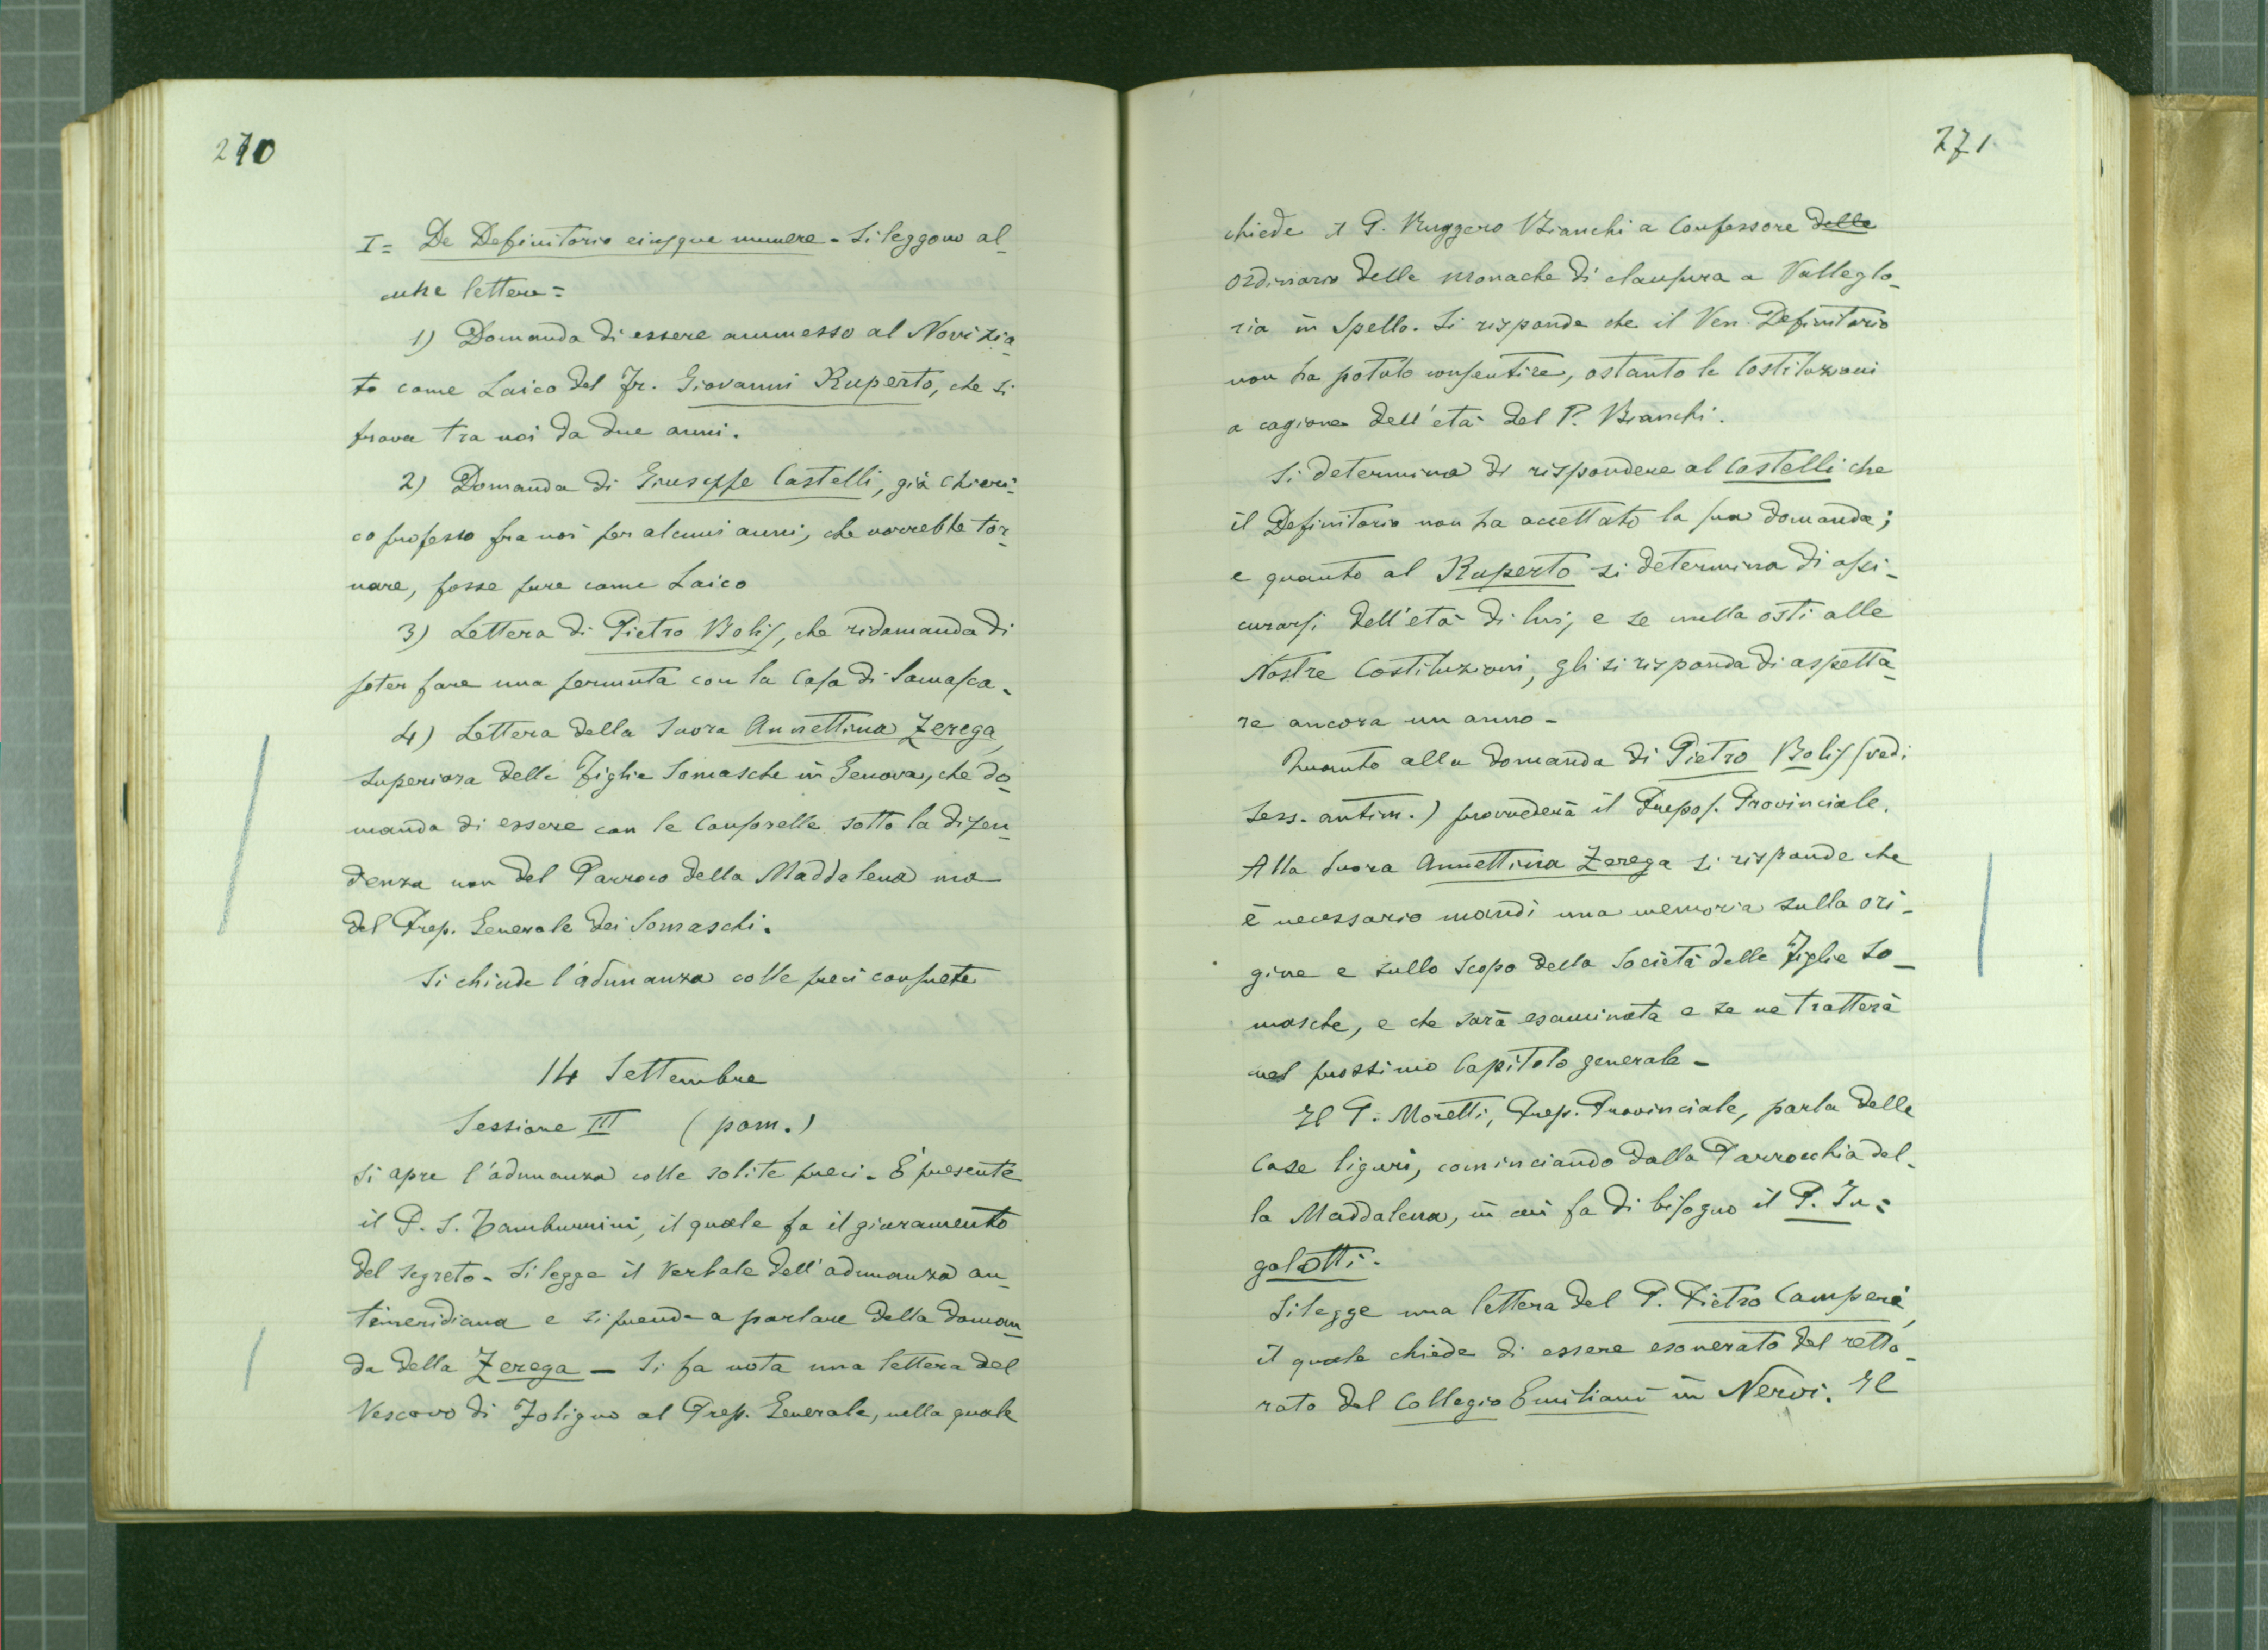 270
I = De Definitorio eiusque munere - Si leggono al-
cune lettere =
1) Domanda di essere ammesso al Novizia-
to come Laico del Fr. Giovanni Ruperto, che si
trova tra noi da due anni.
2) Domanda di Giuseppe Castelli, già chieri-
co professo fra noi per alcuni anni, che vorrebbe tor-
nare, fosse pure come Laico
3) Lettera di Pietro Bolis, che ridomanda di
poter fare una permuta con la Casa di Somasca.
4) Lettera della Suora Annettina Zerega,
Superiora delle Figlie Somasche in Genova, che do-
manda di essere con le Consorelle sotto la dipen-
denza non del Parroco della Maddalena ma
del Prep. Generale dei Somaschi.
Si chiude l'adunanza colle preci consuete
14 Settembre
Sessione III (pom.)
Si apre l'adunanza colle solite preci. È presente
il P. S. Tamburrini, il quale fa il giuramento
del segreto. Si legge il Verbale dell'adunanza an-
timeridiana e si prende a parlare della doman-
da della Zerega — Si fa nota una lettera del
Vescovo di Foligno al Prep. Generale, nella quale
271
chiede il P. Ruggero Bianchi a Confessore delle
ordinario delle monache di clausura a Valleglo-
ria in Spello. Si risponde che il Ven. Definitorio
non ha potuto consentire, ostanto le Costituzioni
a cagione dell'età del P. Bianchi.
Si determina di rispondere al Castelli che
il Definitorio non ha accettato la sua domanda;
e quanto al Ruperto si determina di assi-
curarsi dell'età di lui, e se nulla osti alle
Nostre Costituzioni, gli si risponda di aspetta-
re ancora un anno -
Quanto alla domanda di Pietro Bolis (vedi
Sess. antim.) provvederà il Prepos. Provinciale.
Alla Suora Annettina Zerega si risponde che
è necessario mandi una memoria sulla ori-
gine e sullo scopo della Società delle Figlie So-
masche, e che sarà esaminata e se ne tratterà
nel prossimo Capitolo generale -
Il P. Moretti, Prep. Provinciale, parla delle
Case liguri, cominciando dalla Parrocchia del-
la Maddalena, in cui fa di bisogno il P. In=
galotti.
Si legge una lettera del P. Pietro Camperi,
il quale chiede di essere esonerato del retto-
rato del Collegio Emiliani in Nervi. Il